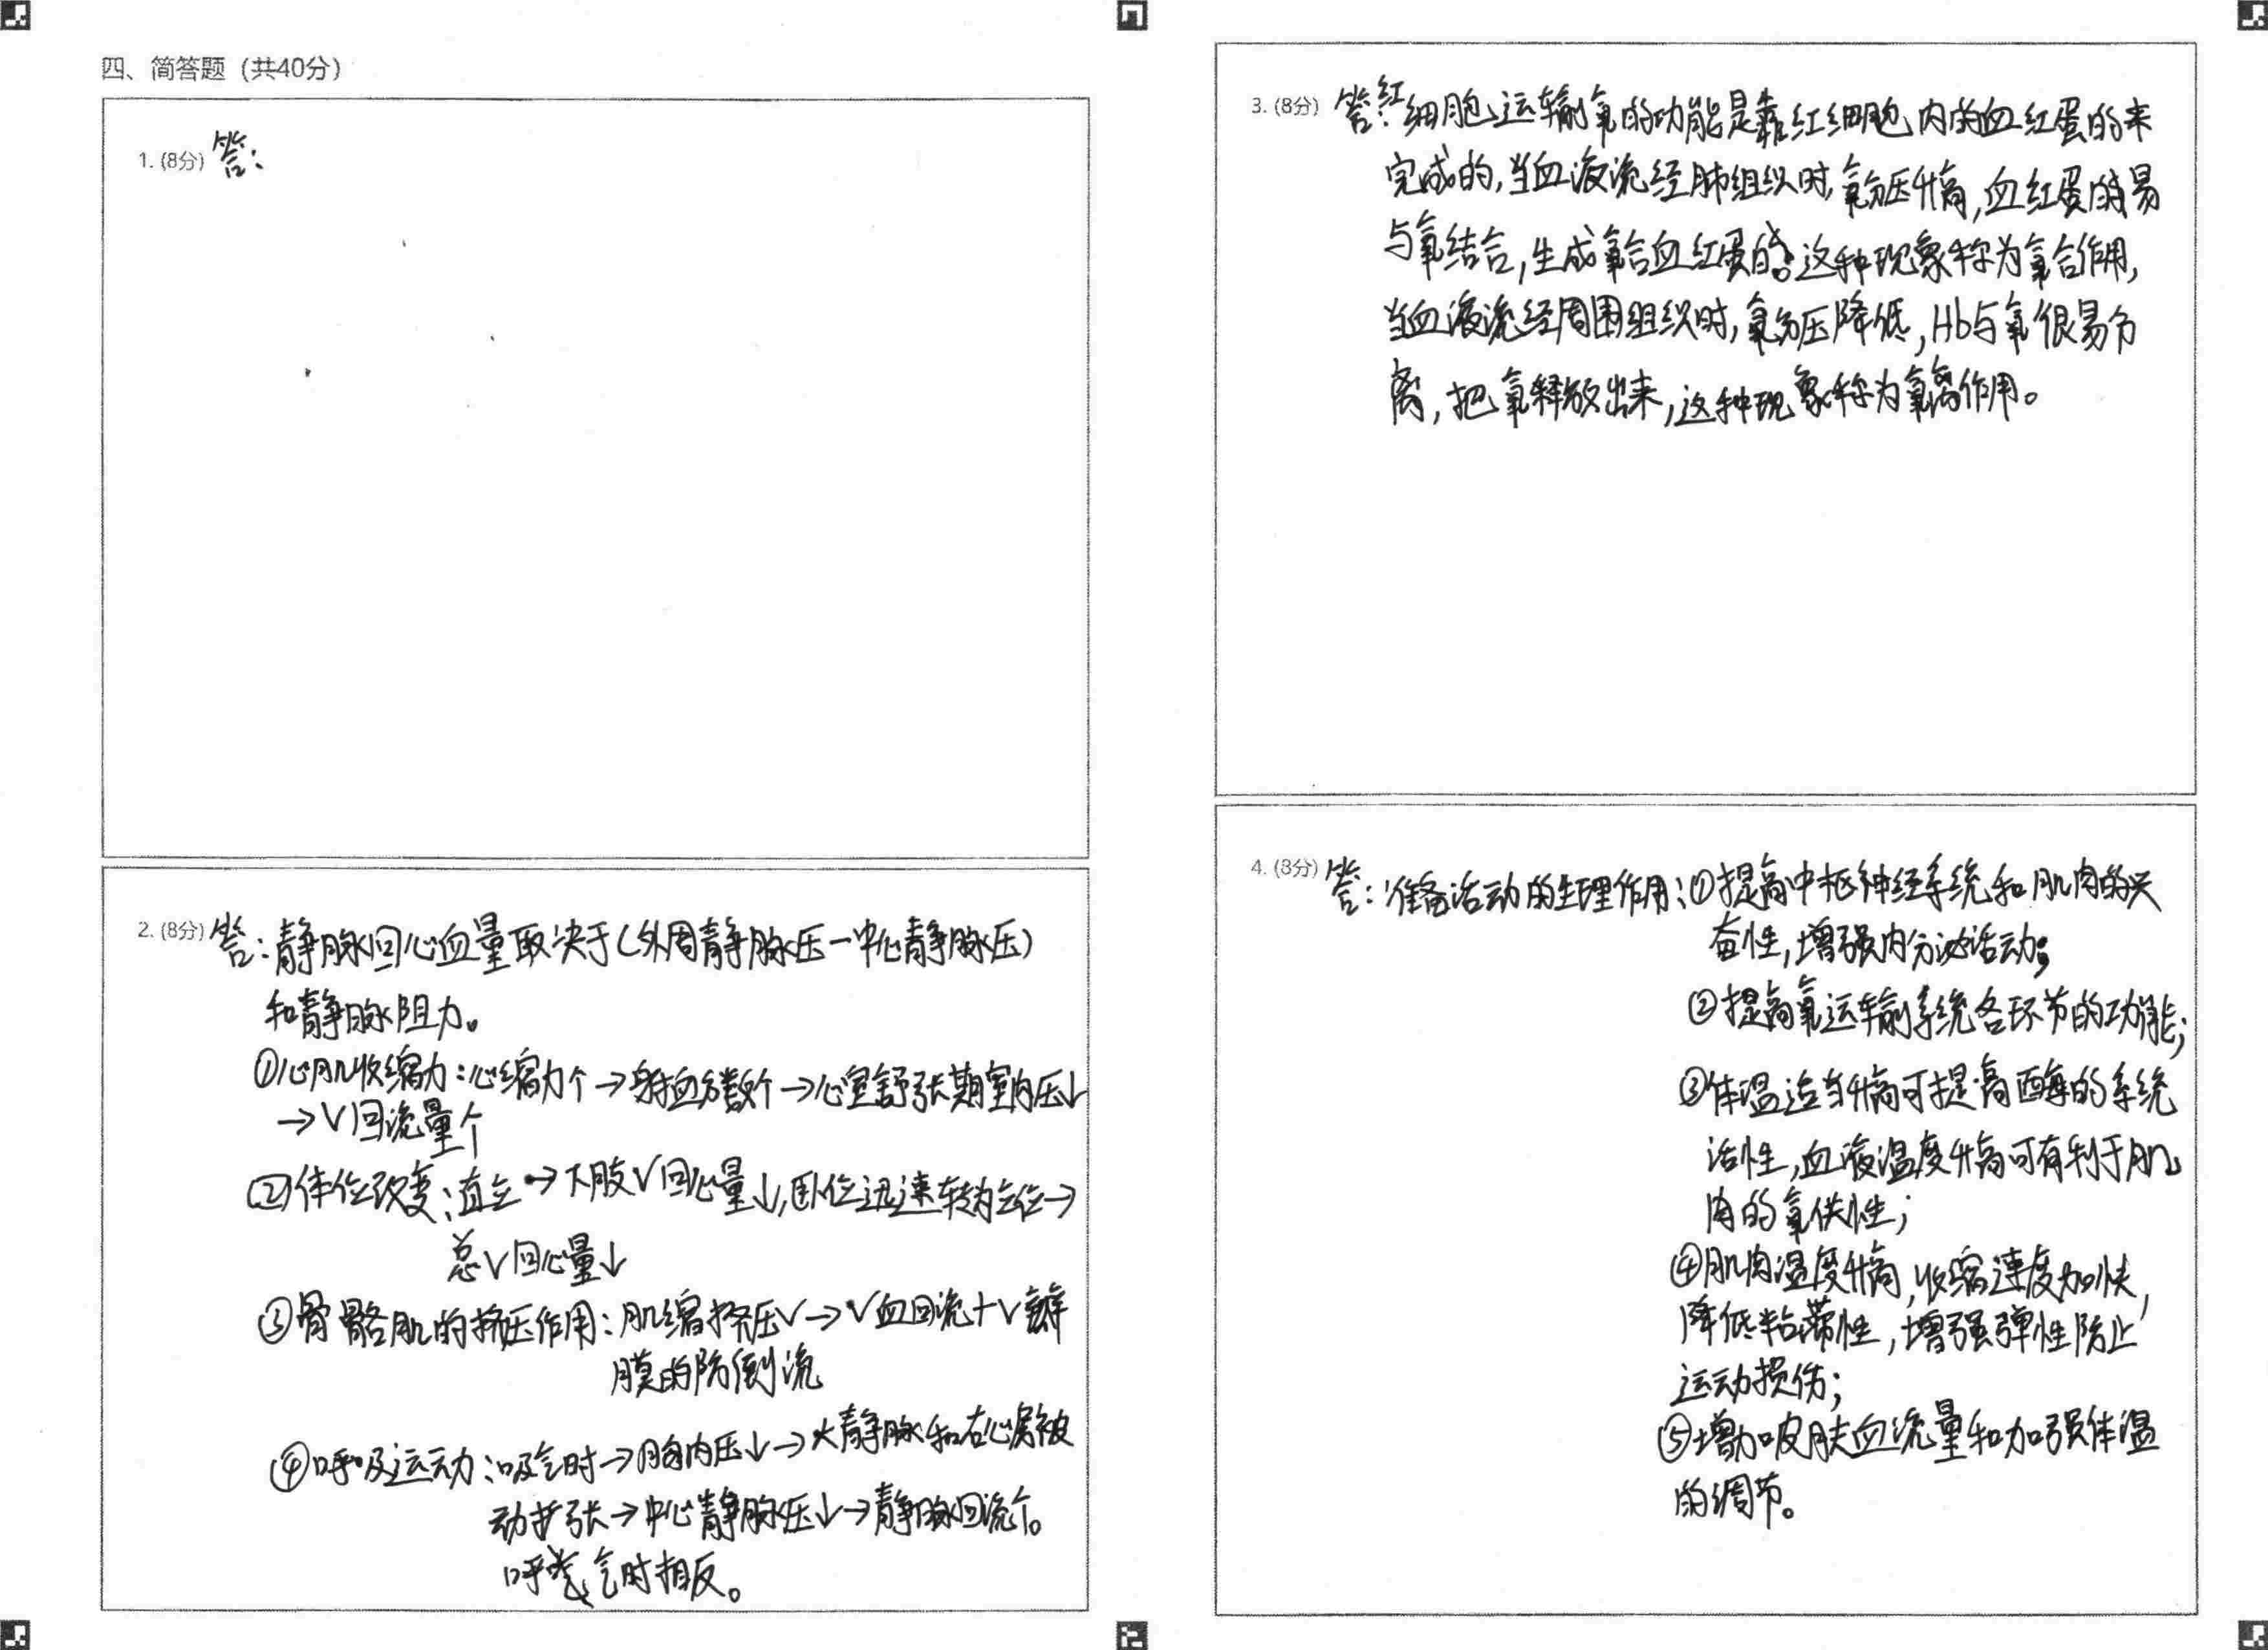 四、简答题（共40分）
1. (8分) 答：
2. (8分) 答：静脉回心血量取决于(外周静脉压－中心静脉压)
和静脉阻力。
①心肌收缩力：心缩力↑→射血分数↑→心室舒张期室内压↓
→V回流量↑
②体位改变：直立→下肢V回心量↓，卧位迅速转为立位→
总V回心量↓
③骨骼肌的挤压作用：肌缩挤压V→V血回流+V瓣
膜的防倒流
④呼吸运动：吸气时→胸内压↓→大静脉和右心房被
动扩张→中心静脉压↓→静脉回流↑。
呼气时相反。
3. (8分) 答：红细胞运输氧的功能是靠红细胞内的血红蛋的来
完成的，当血液流经肺组织时，氧分压升高，血红蛋的易
与氧结合，生成氧合血红蛋的。这种现象称为氧合作用，
当血液流经周围组织时，氧分压降低，Hb与氧很易分
离，把氧释放出来，这种现象称为氧离作用。
4. (8分) 答：准备活动的生理作用：①提高中枢神经系统和肌肉的兴
奋性，增强内分泌活动；
②提高氧运输系统各环节的功能；
③体温适当升高可提高酶的系统
活性，血液温度升高可有利于肌
肉的氧供性；
④肌肉温度升高，收缩速度加快，
降低粘滞性，增强弹性防止
运动损伤；
⑤增加皮肤血流量和加强体温
的调节。